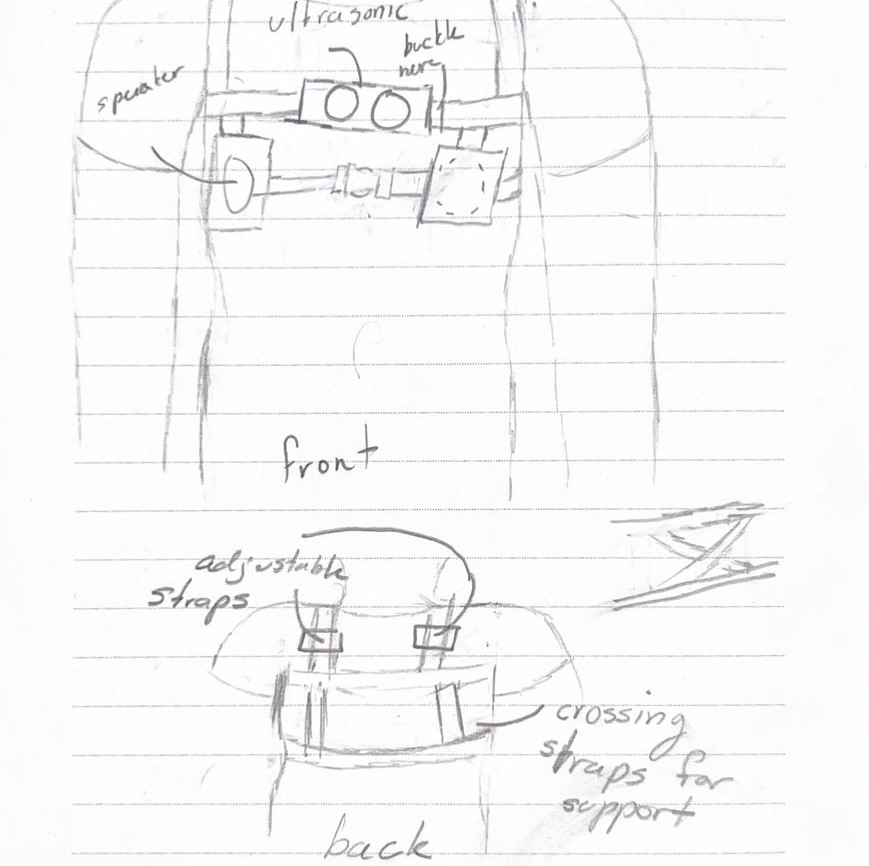 ultrasonic
buckle
here
speaker
front
adjustable
straps
crossing
straps for
support
back